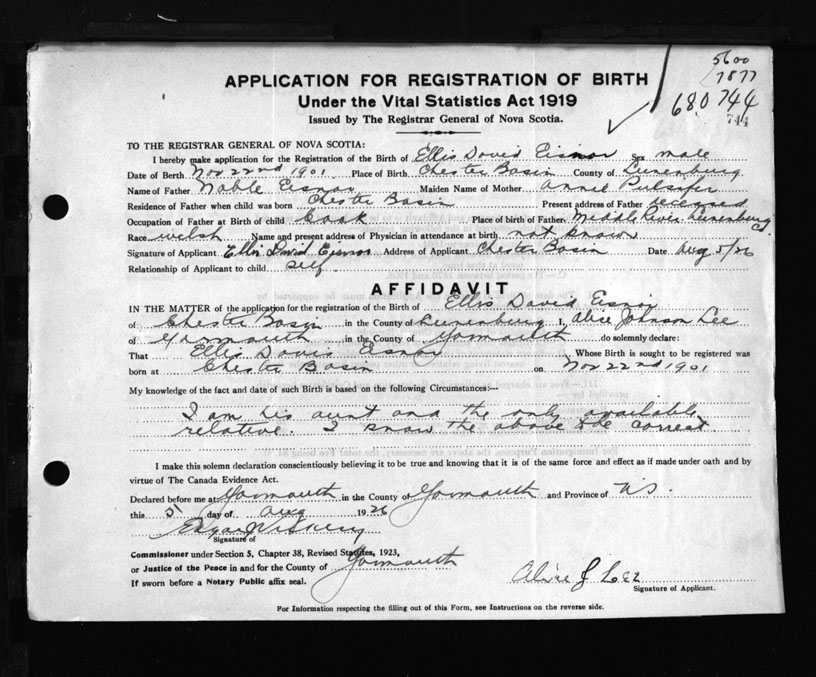 5600
7877
680744
744
APPLICATION FOR REGISTRATION OF BIRTH
Under the Vital Statistics Act 1919
Issued by The Registrar General of Nova Scotia.
TO THE REGISTRAR GENERAL OF NOVA SCOTIA:
I hereby make application for the Registration of the Birth of Ellis David Eisnor Sex male
Date of Birth Nov 22nd 1901 Place of Birth Chester Basin County of Lunenburg
Name of Father Noble Eisnor Maiden Name of Mother Annie Pulsifer
Residence of Father when child was born Chester Basin Present address of Father deceased
Occupation of Father at Birth of child Cook Place of birth of Father Middle River Lunenburg Co.
Race welsh Name and present address of Physician in attendance at birth not known
Signature of Applicant Ellis David Eisnor Address of Applicant Chester Basin Date Aug 5/26
Relationship of Applicant to child self.
AFFIDAVIT
IN THE MATTER of the application for the registration of the Birth of Ellis David Eisnor
of Chester Basin in the County of Lunenburg I, Alice Johnson Lee
of Yarmouth in the County of Yarmouth do solemnly declare:
That Ellis David Eisnor Whose Birth is sought to be registered was
born at Chester Basin on Nov 22nd 1901
My knowledge of the fact and date of such Birth is based on the following Circumstances:—
I am his aunt and the only available
relative. I know the above to be correct.
I make this solemn declaration conscientiously believing it to be true and knowing that it is of the same force and effect as if made under oath and by
virtue of The Canada Evidence Act.
Declared before me at Yarmouth in the County of Yarmouth and Province of N S.
this 5 day of Aug 1926
Signature of
Commissioner under Section 5, Chapter 38, Revised Statutes, 1923,
or Justice of the Peace in and for the County of Yarmouth
If sworn before a Notary Public affix seal.
Alice J Lee
Signature of Applicant.
For Information respecting the filling out of this Form, see Instructions on the reverse side.